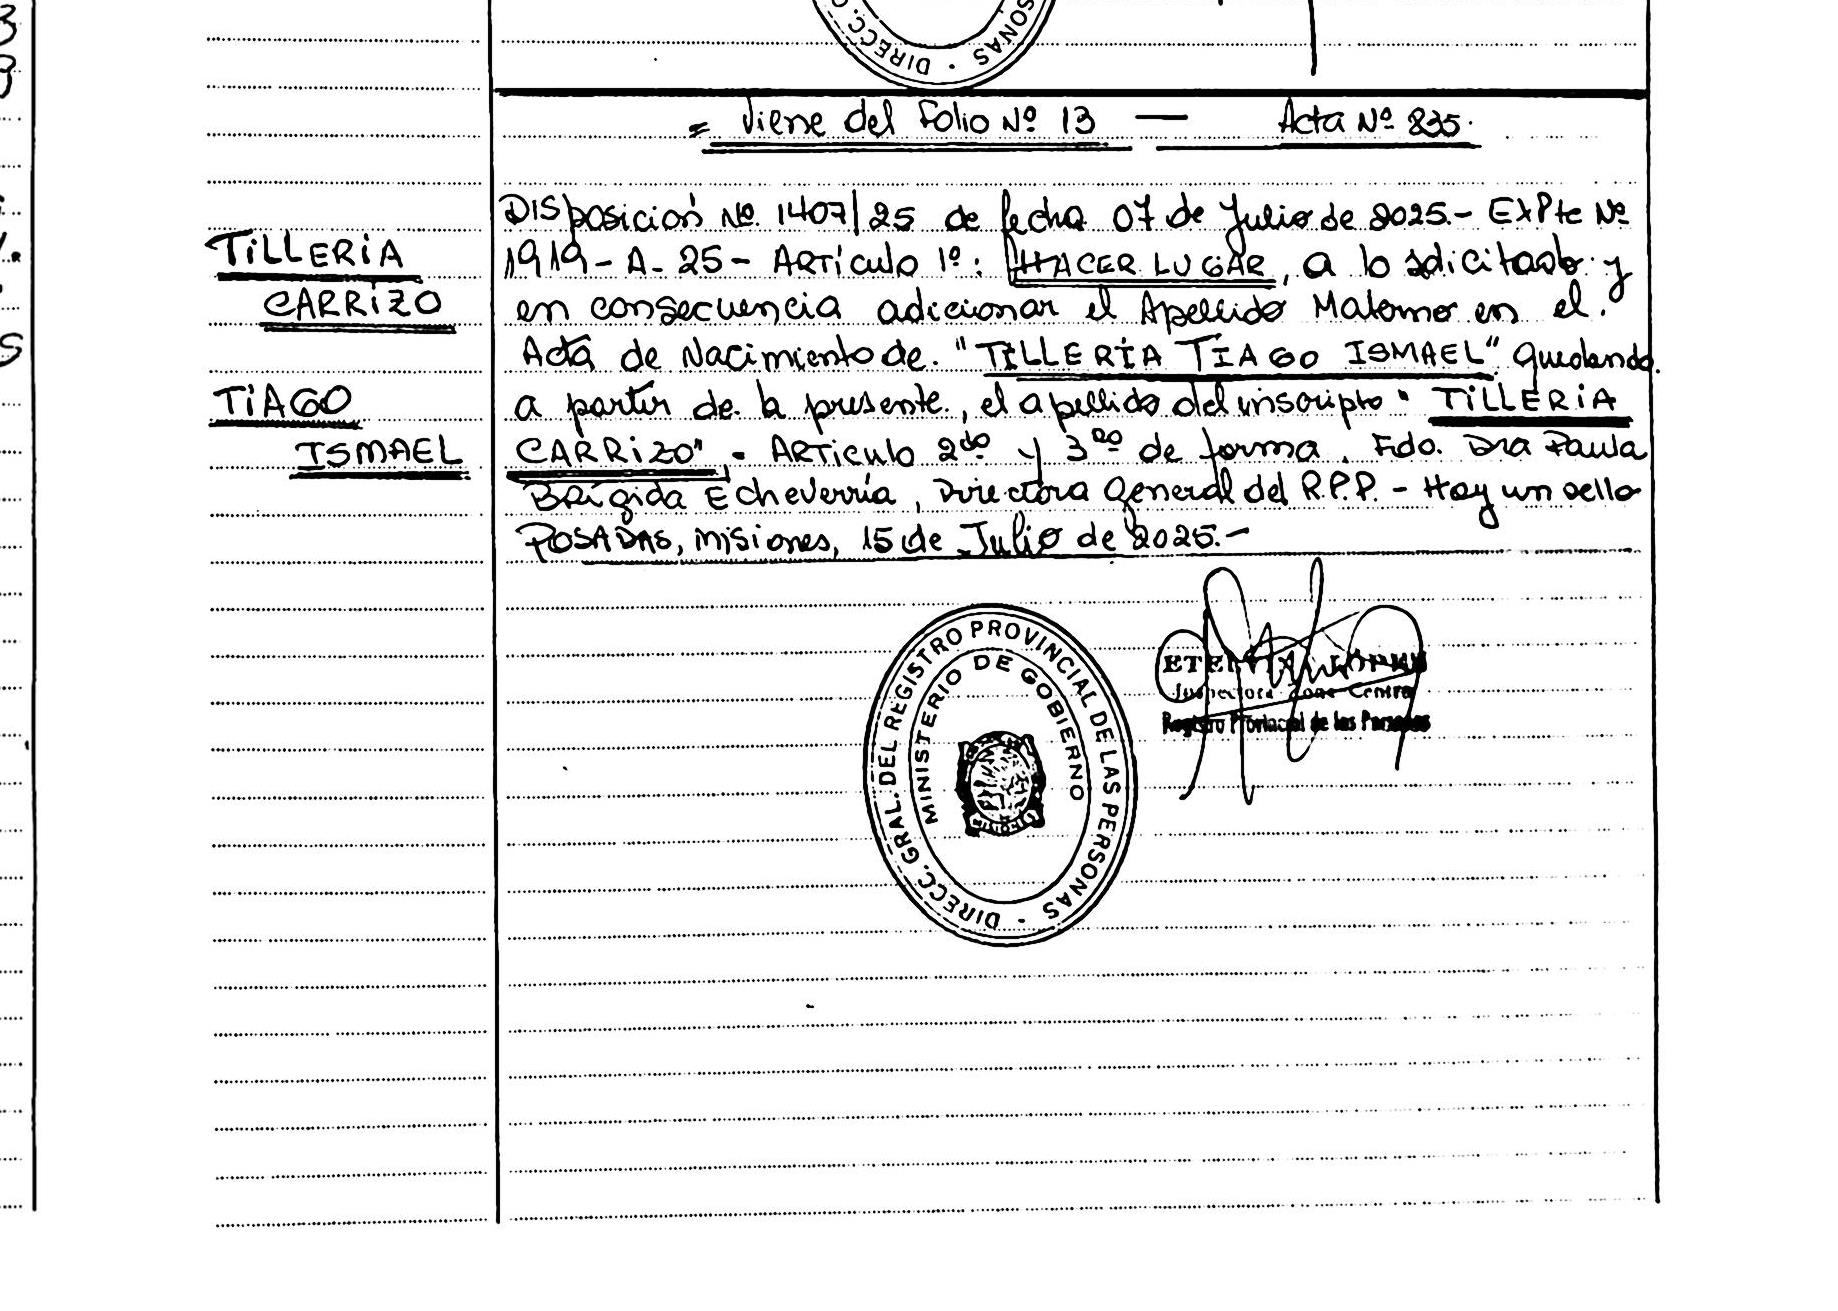 SONAS · DIRECC.
= Viene del Folio Nº 13 — Acta Nº 835.
TiLLERIA
CARRIZO
TIAGO
ISMAEL
DISposición Nº 1407/25 de fecha 07 de Julio de 2025.- EXPte Nº
1919- A- 25- ARTículo 1º: HACER LUGAR, a lo solicitado y
en consecuencia adicionar el Apellido Materno en el.
Acta de Nacimiento de. "TILLERIA TIAGO ISMAEL" quedando
a partir de la presente, el apellido del inscripto "TiLLERIA
CARRIZO". ARTiculo 2do y 3ro de forma. Fdo. Dra Paula
Brigida Echeverría, Directora General del R.P.P. - Hay un sello
POSADAS, Misiones, 15 de Julio de 2025.-
DIRECC. GRAL. DEL REGISTRO PROVINCIAL DE LAS PERSONAS ·
MINISTERIO DE GOBIERNO
Inspectora Zona Centro
Registro Provincial de las Personas